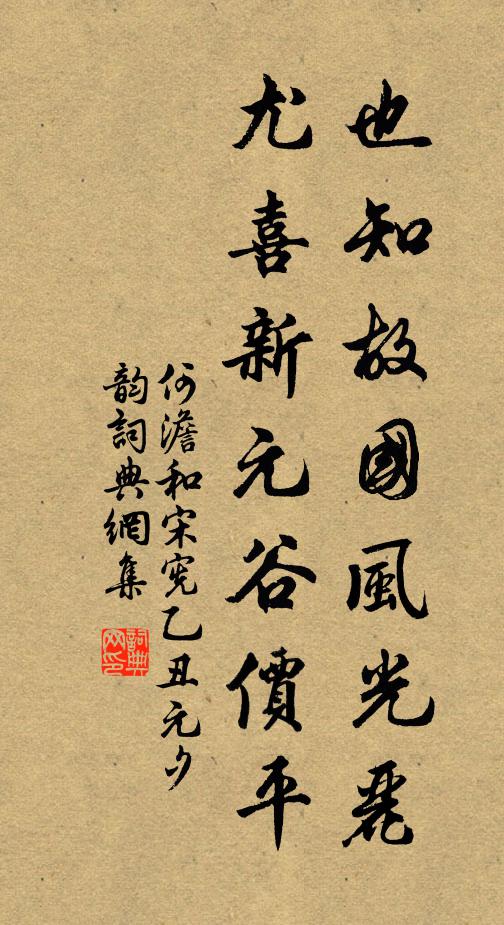 也知故國風光麗
尤喜新元谷價平
何澹和宋憲乙丑元夕
韵詞典網集
詞典
网印